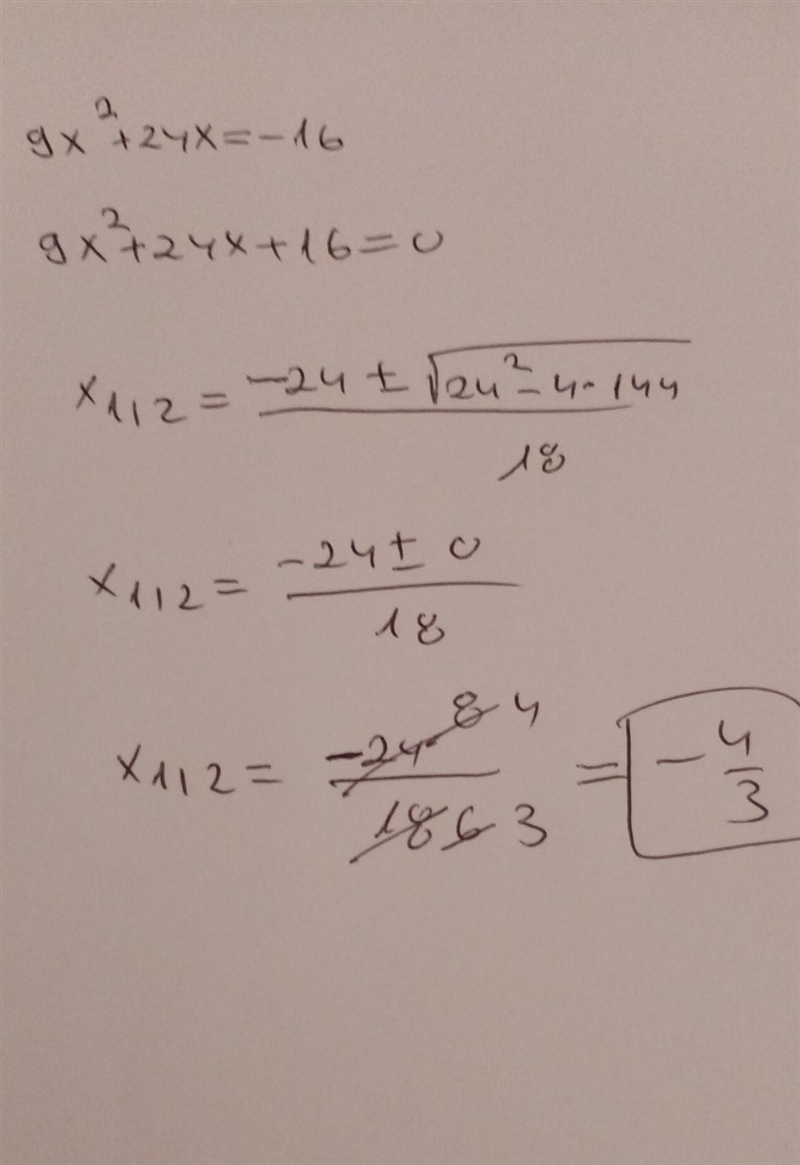 9x²+24x=-16
9x²+24x+16=0
x1,2 = -24 ± √24²-4·144 / 18
x1,2 = -24 ± 0 / 18
x1,2 = -24 8 4 / 18 6 3 = -4/3